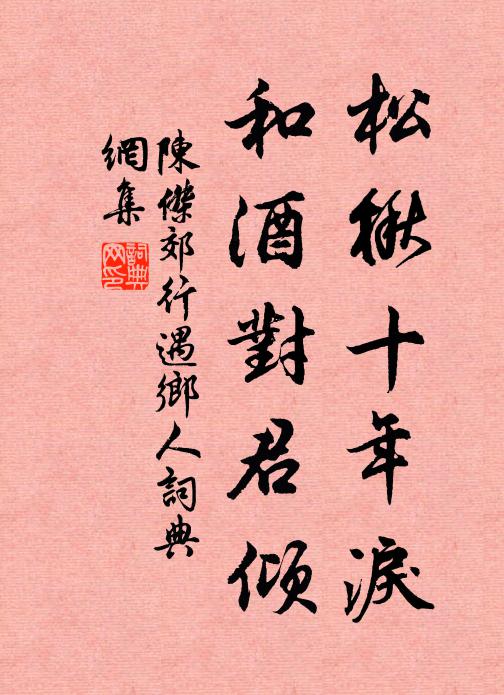 松楸十年淚
和酒對君傾
陳傑郊行遇鄉人詞典
網集
詞典
网印